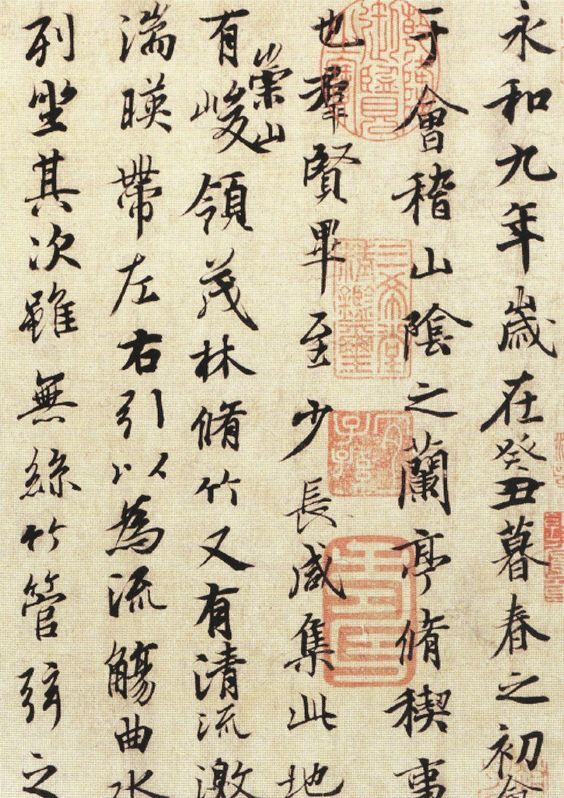 永和九年歲在癸丑暮春之初會
于會稽山陰之蘭亭脩稧事
也羣賢畢至少長咸集此地
有崇山峻領茂林脩竹又有清流激
湍暎帶左右引以為流觴曲水
列坐其次雖無絲竹管弦之
三希堂精鑑璽
宜子孫